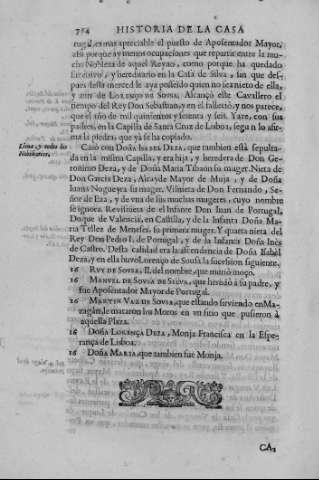 HISTORIA DE LA CASA
tugal, es mas apreciable el puesto de Aposentador Mayor,
assi porque ay menos ocupaciones que repartir entre la mu-
cha Nobleza de aquel Reyno, como porque ha quedado
y hereditario en la Casa de Silva, sin que des-
pues desta merced le aya posseido quien no sea nieto de ella,
y de LORENÇO DE SOUSA. Alcançò este Cavallero el
tiempo del Rey Don Sebastian, y en el fallecio, y nos parece,
que el año de mil quinientos y setenta y seis. Yaze, con sus
padres, en la Capilla de Santa Cruz de Lisboa, segun lo afir-
ma la piedra, que yà se ha copiado.
Casò con DOÑA ISABEL DEZA, que tambien està sepul-
tada en la misma Capilla, y era hija, y heredera de Don Ge-
ronimo Deza, y de Doña Maria Tibaon su mager. Nieta de
Don Garcia Deza, Alcayde Mayor de Muja, y de Doña
Juana Nogueyra su mager. Visnieta de Don Fernando, Se-
ñor de Eza, y de vna de sus muchas mugeres, cuyo nombre
se ignora. Revisnieta de el Infante Don Juan de Portugal,
Duque de Valencia, en Castilla, y de la Infanta Doña Ma-
ria Tellez de Meneses, su primera muger. Y quarta nieta del
Rey Don Pedro I. de Portugal, y de la Infanta Doña Inès
de Castro. Desta calidad era la ascendencia de Doña Isabèl
Deza, y en ella huvo Lorenço de Sousa la sucession siguiente.
16 RUY DE SOUSA, II. del nombre, que muriò moço.
16 MANUEL DE SOUSA DE SILVA, que heredò a su padre, y
fue Aposentador Mayor de Portugal.
16 MARTIN VAZ DE SOUSA, que estando sirviendo en Ma-
zagàn, le mataron los Moros en un sitio que pusieron à
aquella Plaza.
16 DOÑA LORANÇA DEZA, Monja Francisca en la Espe-
rança de Lisboa.
16 DOÑA MARIA, que tambien fue Monja.
CA-